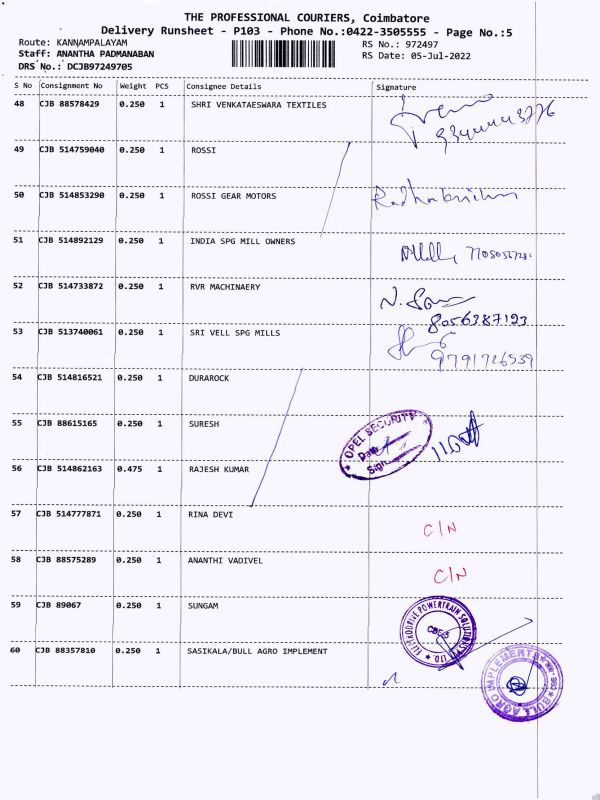 THE PROFESSIONAL COURIERS, Coimbatore
Delivery Runsheet - P103 - Phone No.:0422-3505555 - Page No.:5
Route: KANNAMPALAYAM
Staff: ANANTHA PADMANABAN
DRS No.: DCJB97249705
RS No.: 972497
RS Date: 05-Jul-2022
S No Consignment No Weight PCS Consignee Details Signature
48 CJB 88578429 0.250 1 SHRI VENKATAESWARA TEXTILES
49 CJB 514759040 0.250 1 ROSSI
50 CJB 514853290 0.250 1 ROSSI GEAR MOTORS
51 CJB 514892129 0.250 1 INDIA SPG MILL OWNERS
52 CJB 514733872 0.250 1 RVR MACHINAERY N.
8056387123
53 CJB 513740061 0.250 1 SRI VELL SPG MILLS
9791726539
54 CJB 514816521 0.250 1 DURAROCK
55 CJB 88615165 0.250 1 SURESH OPEL SECURITY
Date
Sign
56 CJB 514862163 0.475 1 RAJESH KUMAR
57 CJB 514777871 0.250 1 RINA DEVI C/N
58 CJB 88575289 0.250 1 ANANTHI VADIVEL C/N
59 CJB 89067 0.250 1 SUNGAM
POWERTRAIN SOLUTIONS
LTD.
60 CJB 88357810 0.250 1 SASIKALA/BULL AGRO IMPLEMENT
BULL AGRO IMPLEMENTS